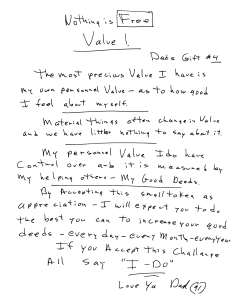 Nothing is Free
Value !.
Dads Gift #4
The most precious Value I have is
my own personnal Value - as to how good
I feel about myself.
Material things often change in Value
and we have little nothing to say about it.
My personnal Value I do have
Control over and it is measured by
my helping others - My Good Deeds.
By Accepting this small token as
appreciation - I will expect you to do
the best you can to increase your good
deeds - every day - every Month - every year
If you Accept this Challange
All say "I - Do"
Love Ya Dad